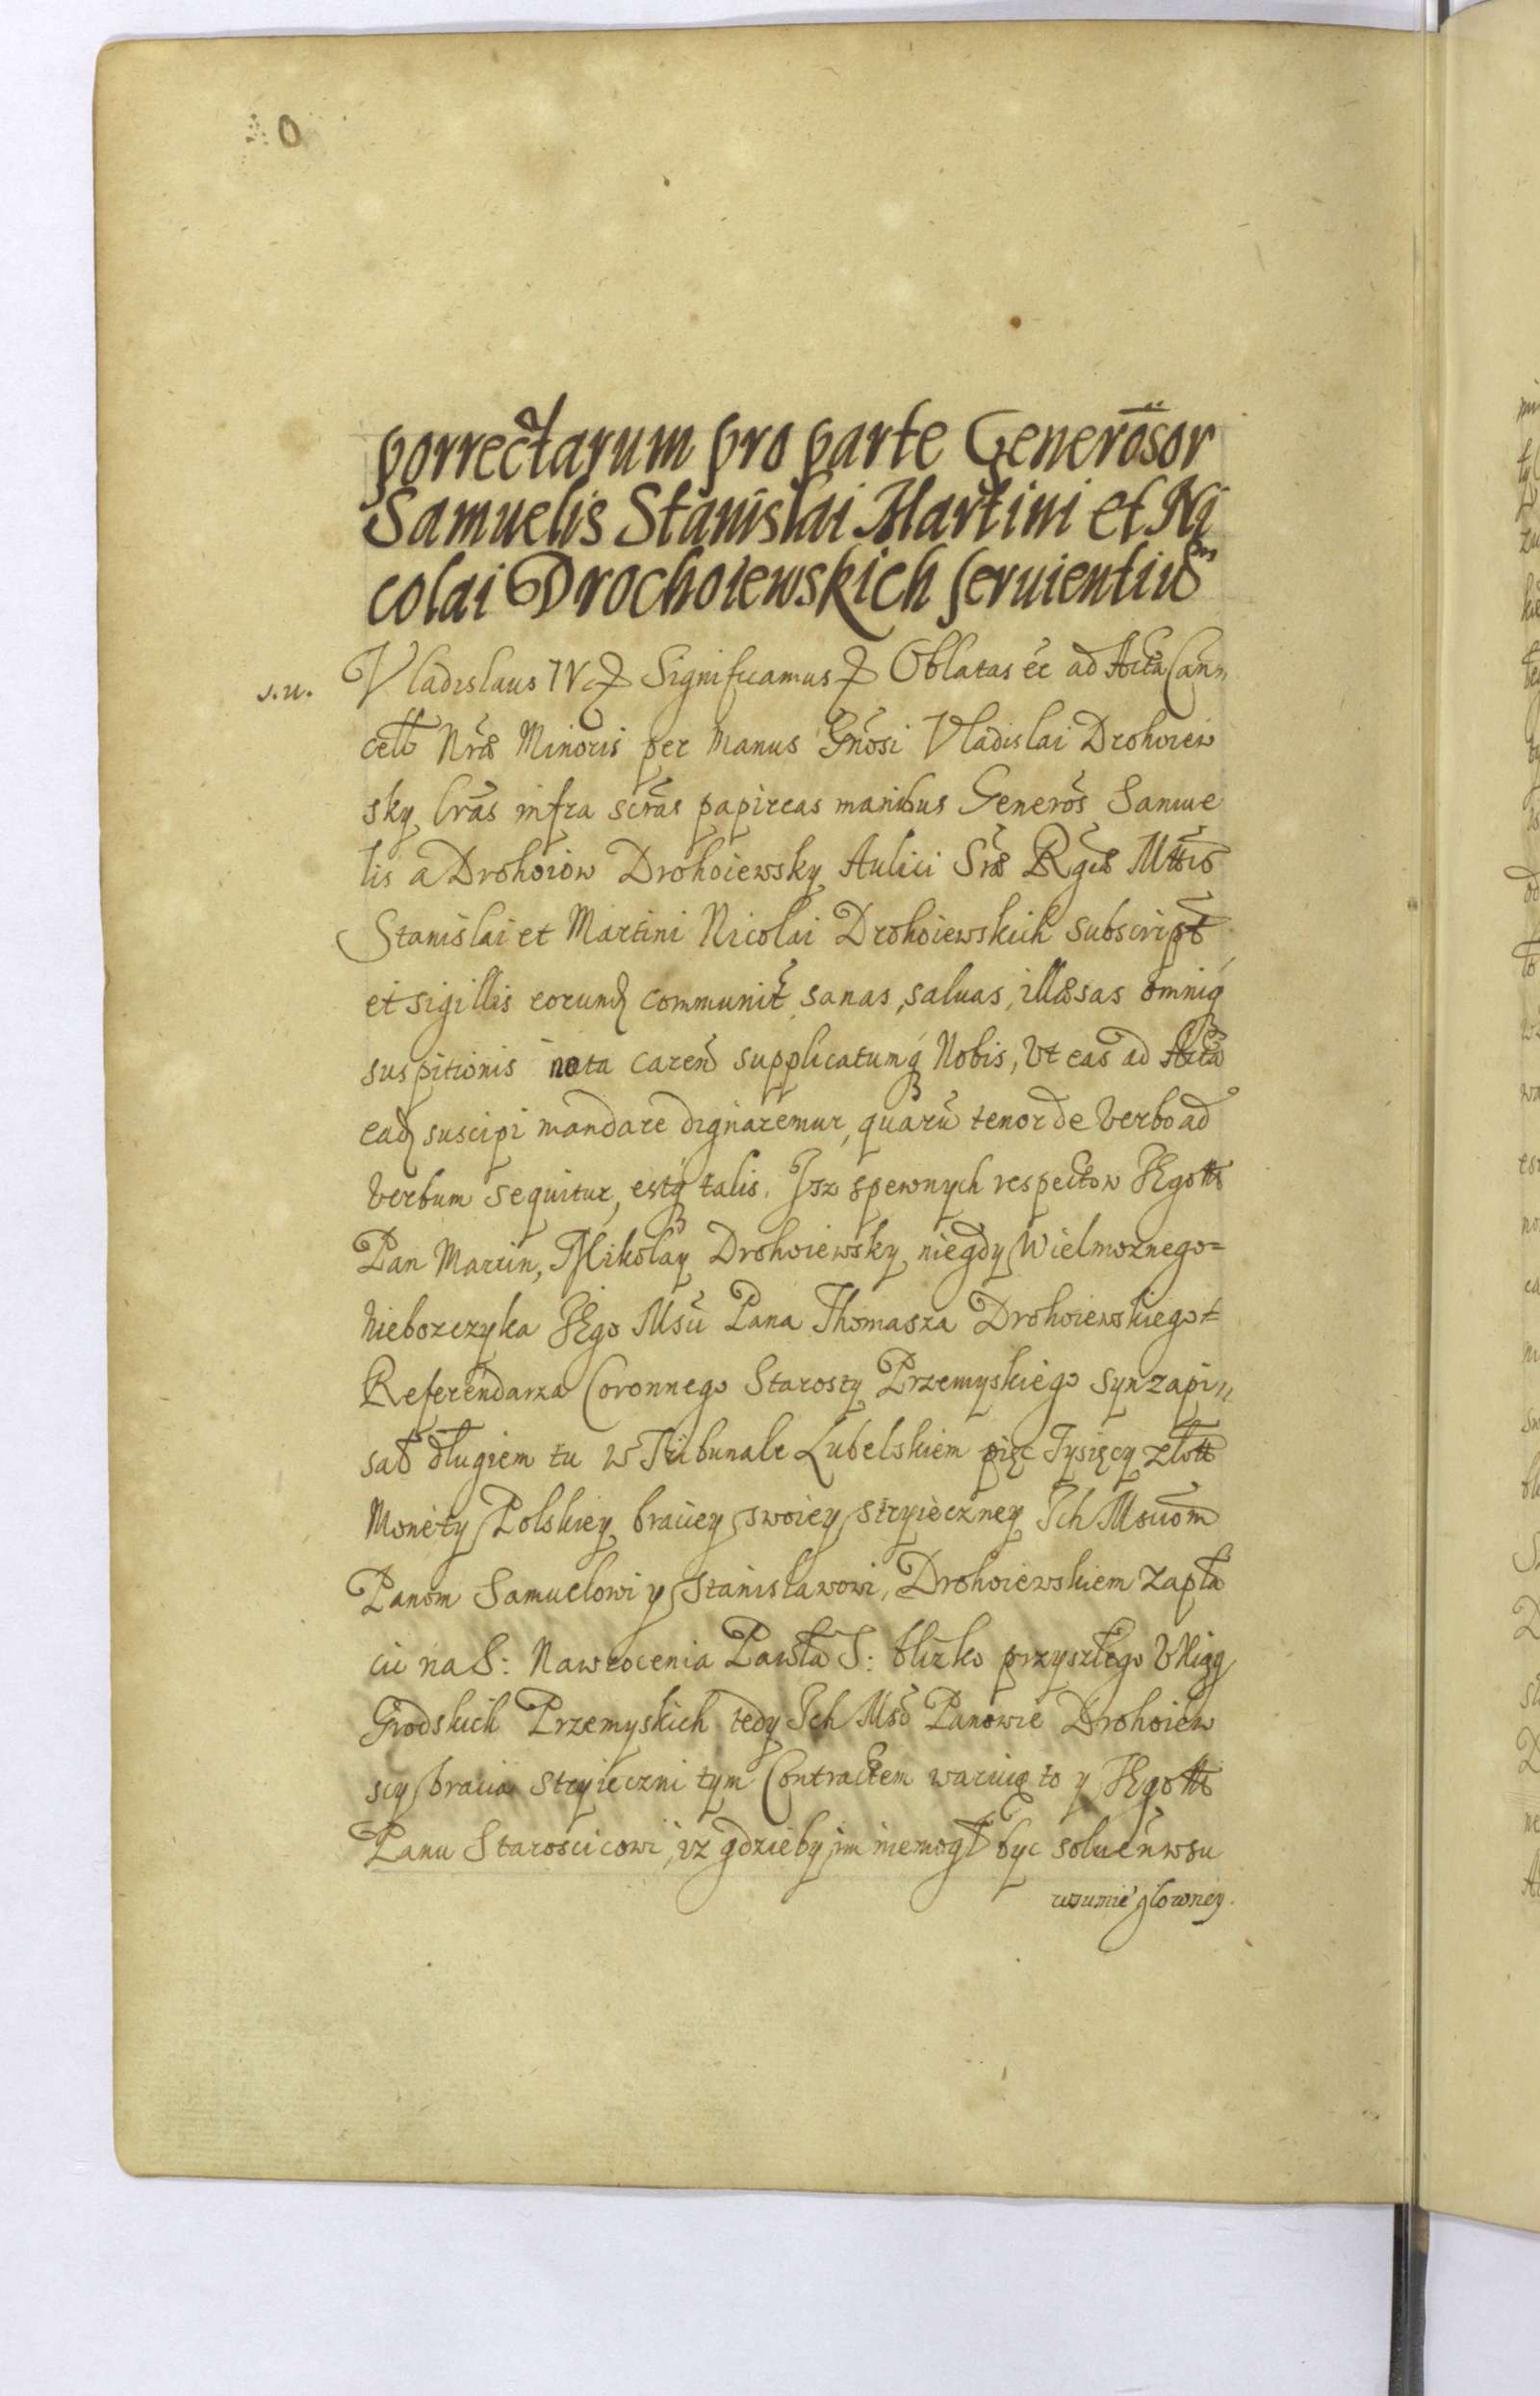 0
porrectarum pro parte Generosor
Samuelis Stanislai Martini et Ni
colai Drochoiewskich seruientiu
Vladislaus IV Significamus Oblatas ee ad Acta Can„
cell Nrae Minoris per manus Gnosi Vladislai Drohoiew
sky lras infra scras papireas manibus Generos Samue
lis a Drohoiow Drohoiewsky Aulici Srae Rgiae Mttis
Stanislai et Martini Nicolai Drohoiewskich subscript
et sigillis eorund communit, sanas, saluas, illaesas omniq
suspitionis nota caren supplicatumq Nobis, Vt eas ad Acta
ead suscipi mandare dignaremur, quaru tenor de verbo ad
verbum sequitur, estq talis. Isz spewnych respectow JEgo
Pan Marcin, Mikołay Drohoiewsky niegdy Wielmoznego=
Nieborzczyka JEgo Msci Pana Thomasza Drohoiewskiego=
Referendarza Coronnego Starosty Przemyskiego syn zapi„
sał długiem tu w Tribunale Lubelskiem pięc Tysięcy złott
Monety Polskiey braciey swoiey stryieczney Ich Msciom
Panom Samuelowi y Stanisławowi, Drohoiewskiem zapła
cic na S: Nawrocenia Pawła S: blizko przyszłego VKięg
Grodskich Przemyskich tedy Ich Msc Panowie Drohoiew
scy bracia stryieczni tym Contractem waruią to y JEgo
Panu Starościcowi, iz gdzieby im niemogł byc soluen wsu
wsumie głowney.